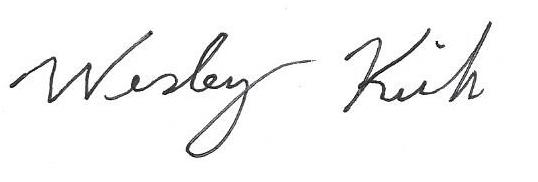 Wesley Kirk